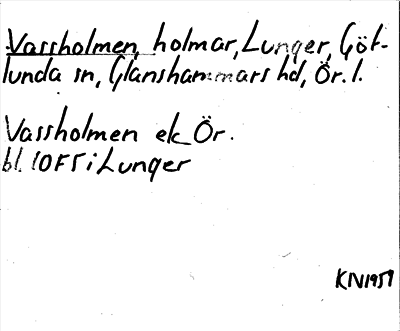 Vassholmen, holmar, Lunger, Göt-
lunda sn, Glanshammars hd, Ör. l.
Vassholmen ek Ör.
bl. 10F5i Lunger
KN1959